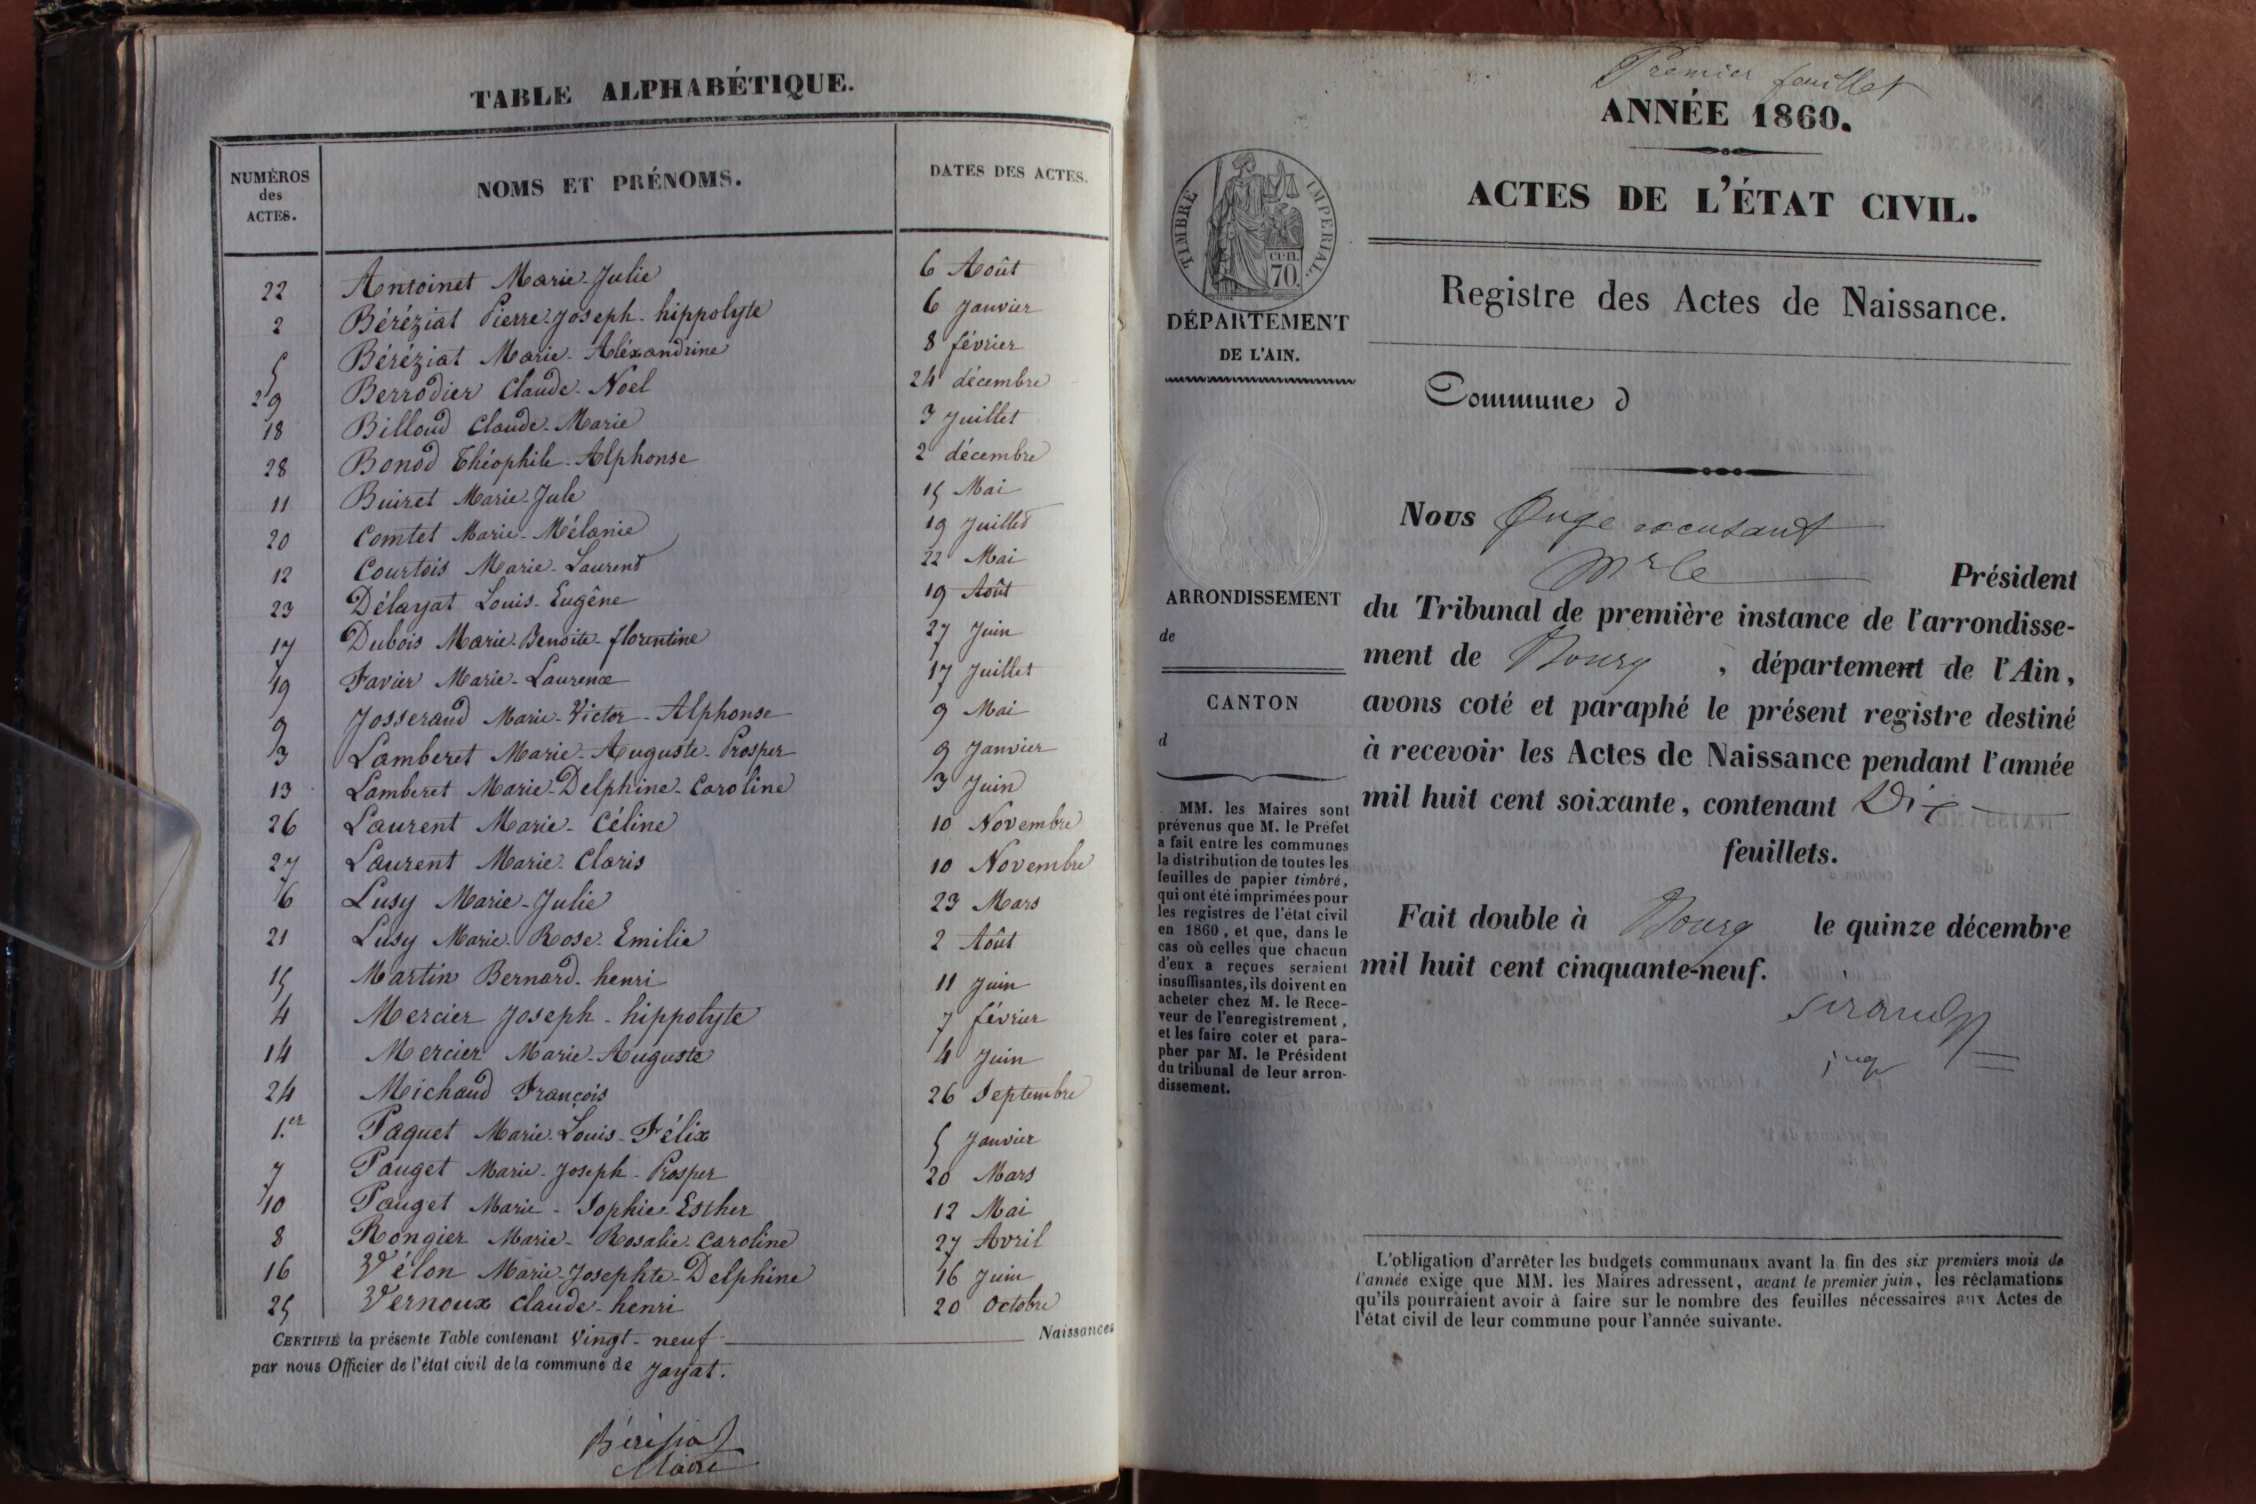 TABLE ALPHABÉTIQUE.
NUMÉROS des ACTES. NOMS ET PRÉNOMS. DATES DES ACTES.
22 Antoinet Marie-Julie 6 Août
2 Béréziat Pierre-Joseph-hippolyte 6 Janvier
5 Béréziat Marie-Aléxandrine 8 février
29 Berrodier Claude-Noel 24 décembre
18 Billoud Claude-Marie 3 Juillet
28 Bonod Théophile-Alphonse 2 décembre
11 Buiret Marie-Jule 15 Mai
20 Comtet Marie-Mélanie 19 Juillet
12 Courtois Marie-Laurent 22 Mai
23 Délayat Louis-Eugêne 19 Août
17 Dubois Marie-Benoite-florentine 27 Juin
19 Favier Marie-Laurence 17 Juillet
9 Josserand Marie-Victor-Alphonse 9 Mai
3 Lamberet Marie-Auguste-Prosper 9 Janvier
13 Lamberet Marie-Delphine-Caroline 3 Juin
26 Laurent Marie-Céline 10 Novembre
27 Laurent Marie-Claris 10 Novembre
6 Lusy Marie-Julie 23 Mars
21 Lusy Marie-Rose-Emilie 2 Août
15 Martin Bernard-henri 11 Juin
4 Mercier Joseph-hippolyte 7 février
14 Mercier Marie-Auguste 4 Juin
24 Michaud François 26 Septembre
1.er Paquet Marie-Louis-Félix 5 Janvier
7 Pauget Marie-Joseph-Prosper 20 Mars
10 Pauget Marie-Sophie-Esther 12 Mai
8 Rongier Marie-Rosalie-Caroline 27 Avril
16 Vélon Marie-Josephte-Delphine 16 Juin
25 Vernoux Claude-henri 20 Octobre
CERTIFIÉ la présente Table contenant Vingt-neuf Naissances
par nous Officier de l'état civil de la commune de Jayat.
Béréziat
Maire
Premier feuillet
ANNÉE 1860.
ACTES DE L'ÉTAT CIVIL.
Registre des Actes de Naissance.
Commune d
TIMBRE IMPÉRIAL.
CEN.
70.
DÉPARTEMENT
DE L'AIN.
ARRONDISSEMENT
de
CANTON
d
MM. les Maires sont
prévenus que M. le Préfet
a fait entre les communes
la distribution de toutes les
feuilles de papier timbré,
qui ont été imprimées pour
les registres de l'état civil
en 1860, et que, dans le
cas où celles que chacun
d'eux a reçues seraient
insuffisantes, ils doivent en
acheter chez M. le Rece-
veur de l'enregistrement,
et les faire coter et para-
pher par M. le Président
du tribunal de leur arron-
dissement.
Nous Juge
Mr le Président
du Tribunal de première instance de l'arrondisse-
ment de Bourg, département de l'Ain,
avons coté et paraphé le présent registre destiné
à recevoir les Actes de Naissance pendant l'année
mil huit cent soixante, contenant Dix
feuillets.
Fait double à Bourg le quinze décembre
mil huit cent cinquante-neuf.
juge
L'obligation d'arrêter les budgets communaux avant la fin des six premiers mois de
l'année exige que MM. les Maires adressent, avant le premier juin, les réclamations
qu'ils pourraient avoir à faire sur le nombre des feuilles nécessaires aux Actes de
l'état civil de leur commune pour l'année suivante.